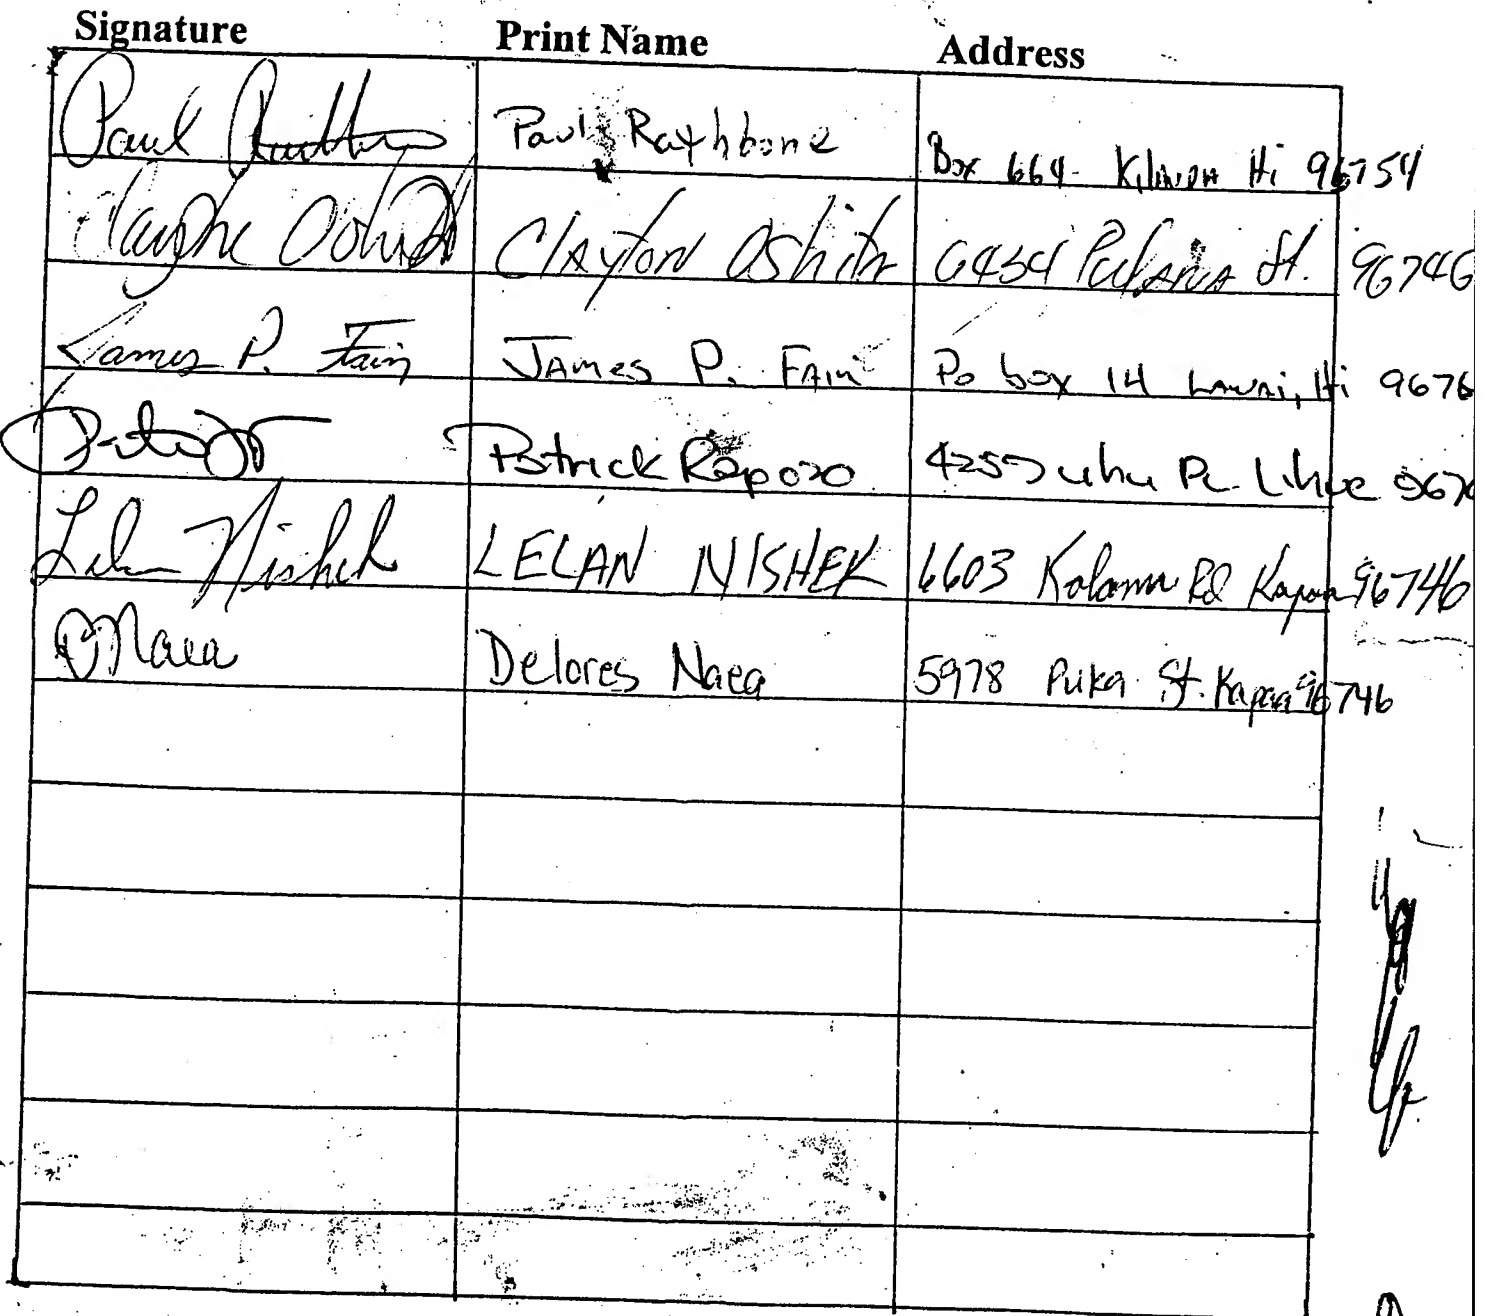 Signature Print Name Address
Paul Paul Rathbone Box 664 Kilauea Hi 96754
Clayton Oshita 6454 St. 96746
James P. Fain James P. Fain Po box 14 Lawai, Hi 9676
Patrick Raposo 4255 uhu PL. Lihue 9676
Lelan Nishek LELAN NISHEK 6603 Kalama Rd Kapaa 96746
D Naea Delores Naea 5978 Puka St. Kapaa 96746